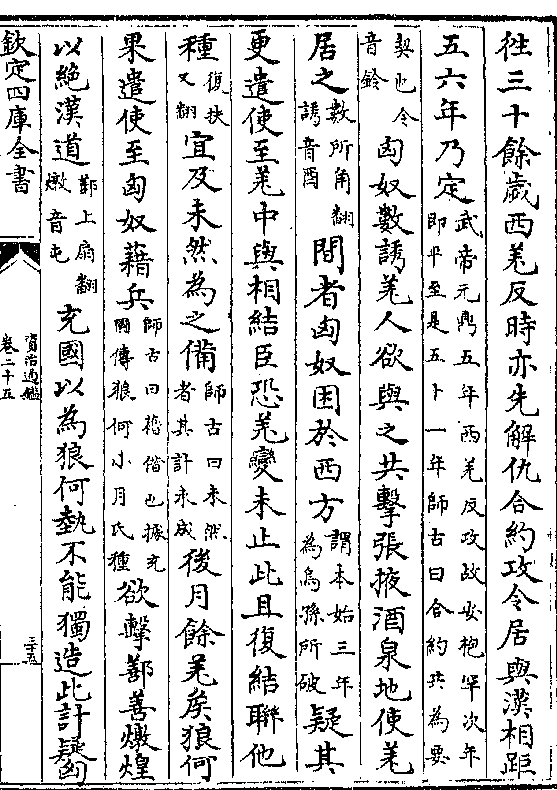 徃三十餘歲西羌反時亦先解仇合約攻令居與漢相距
五六年乃定武帝元鼎五年西羌反攻故安枹罕次年
即平至是五十一年師古曰合約共為要
契也令
音鈴匈奴數誘羌人欲與之共擊張掖酒泉地使羌
居之數所角翻
誘音酉間者匈奴困於西方謂本始三年
為烏孫所破疑其
更遣使至羌中與相結臣恐羌變未止此且復結聯他
種復扶
又翻宜及未然為之備師古曰未然
者其計未成後月餘羌矦狼何
果遣使至匈奴藉兵師古曰藉借也據充
國傳狼何小月氏種欲擊鄯善燉煌
以絶漢道鄯上扇翻
燉音屯充國以為狼何埶不能獨造此計疑匈
欽定四庫全書
資治通鑑
卷二十五
三十五